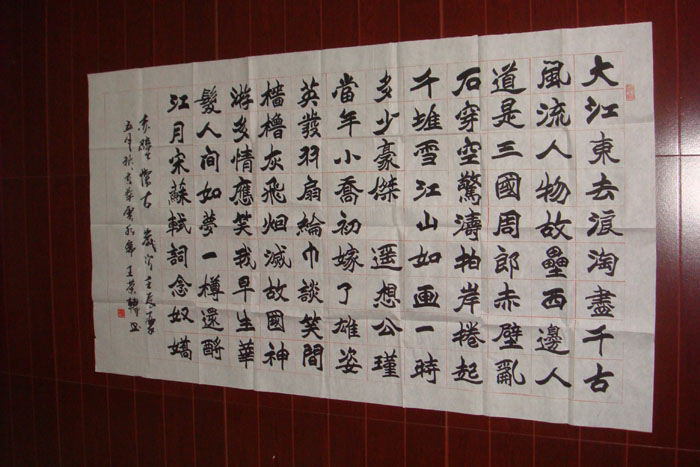 大江東去浪淘盡千古
風流人物故壘西邊人
道是三國周郎赤壁亂
石穿空驚濤拍岸捲起
千堆雪江山如画一時
多少豪傑 遥想公瑾
當年小喬初嫁了雄姿
英發羽扇綸巾談笑間
檣櫓灰飛烟滅故國神
游多情應笑我早生華
髮人间如夢一樽還酹
江月宋蘇軾詞念奴嬌
赤壁懷古 歲次
五年秋